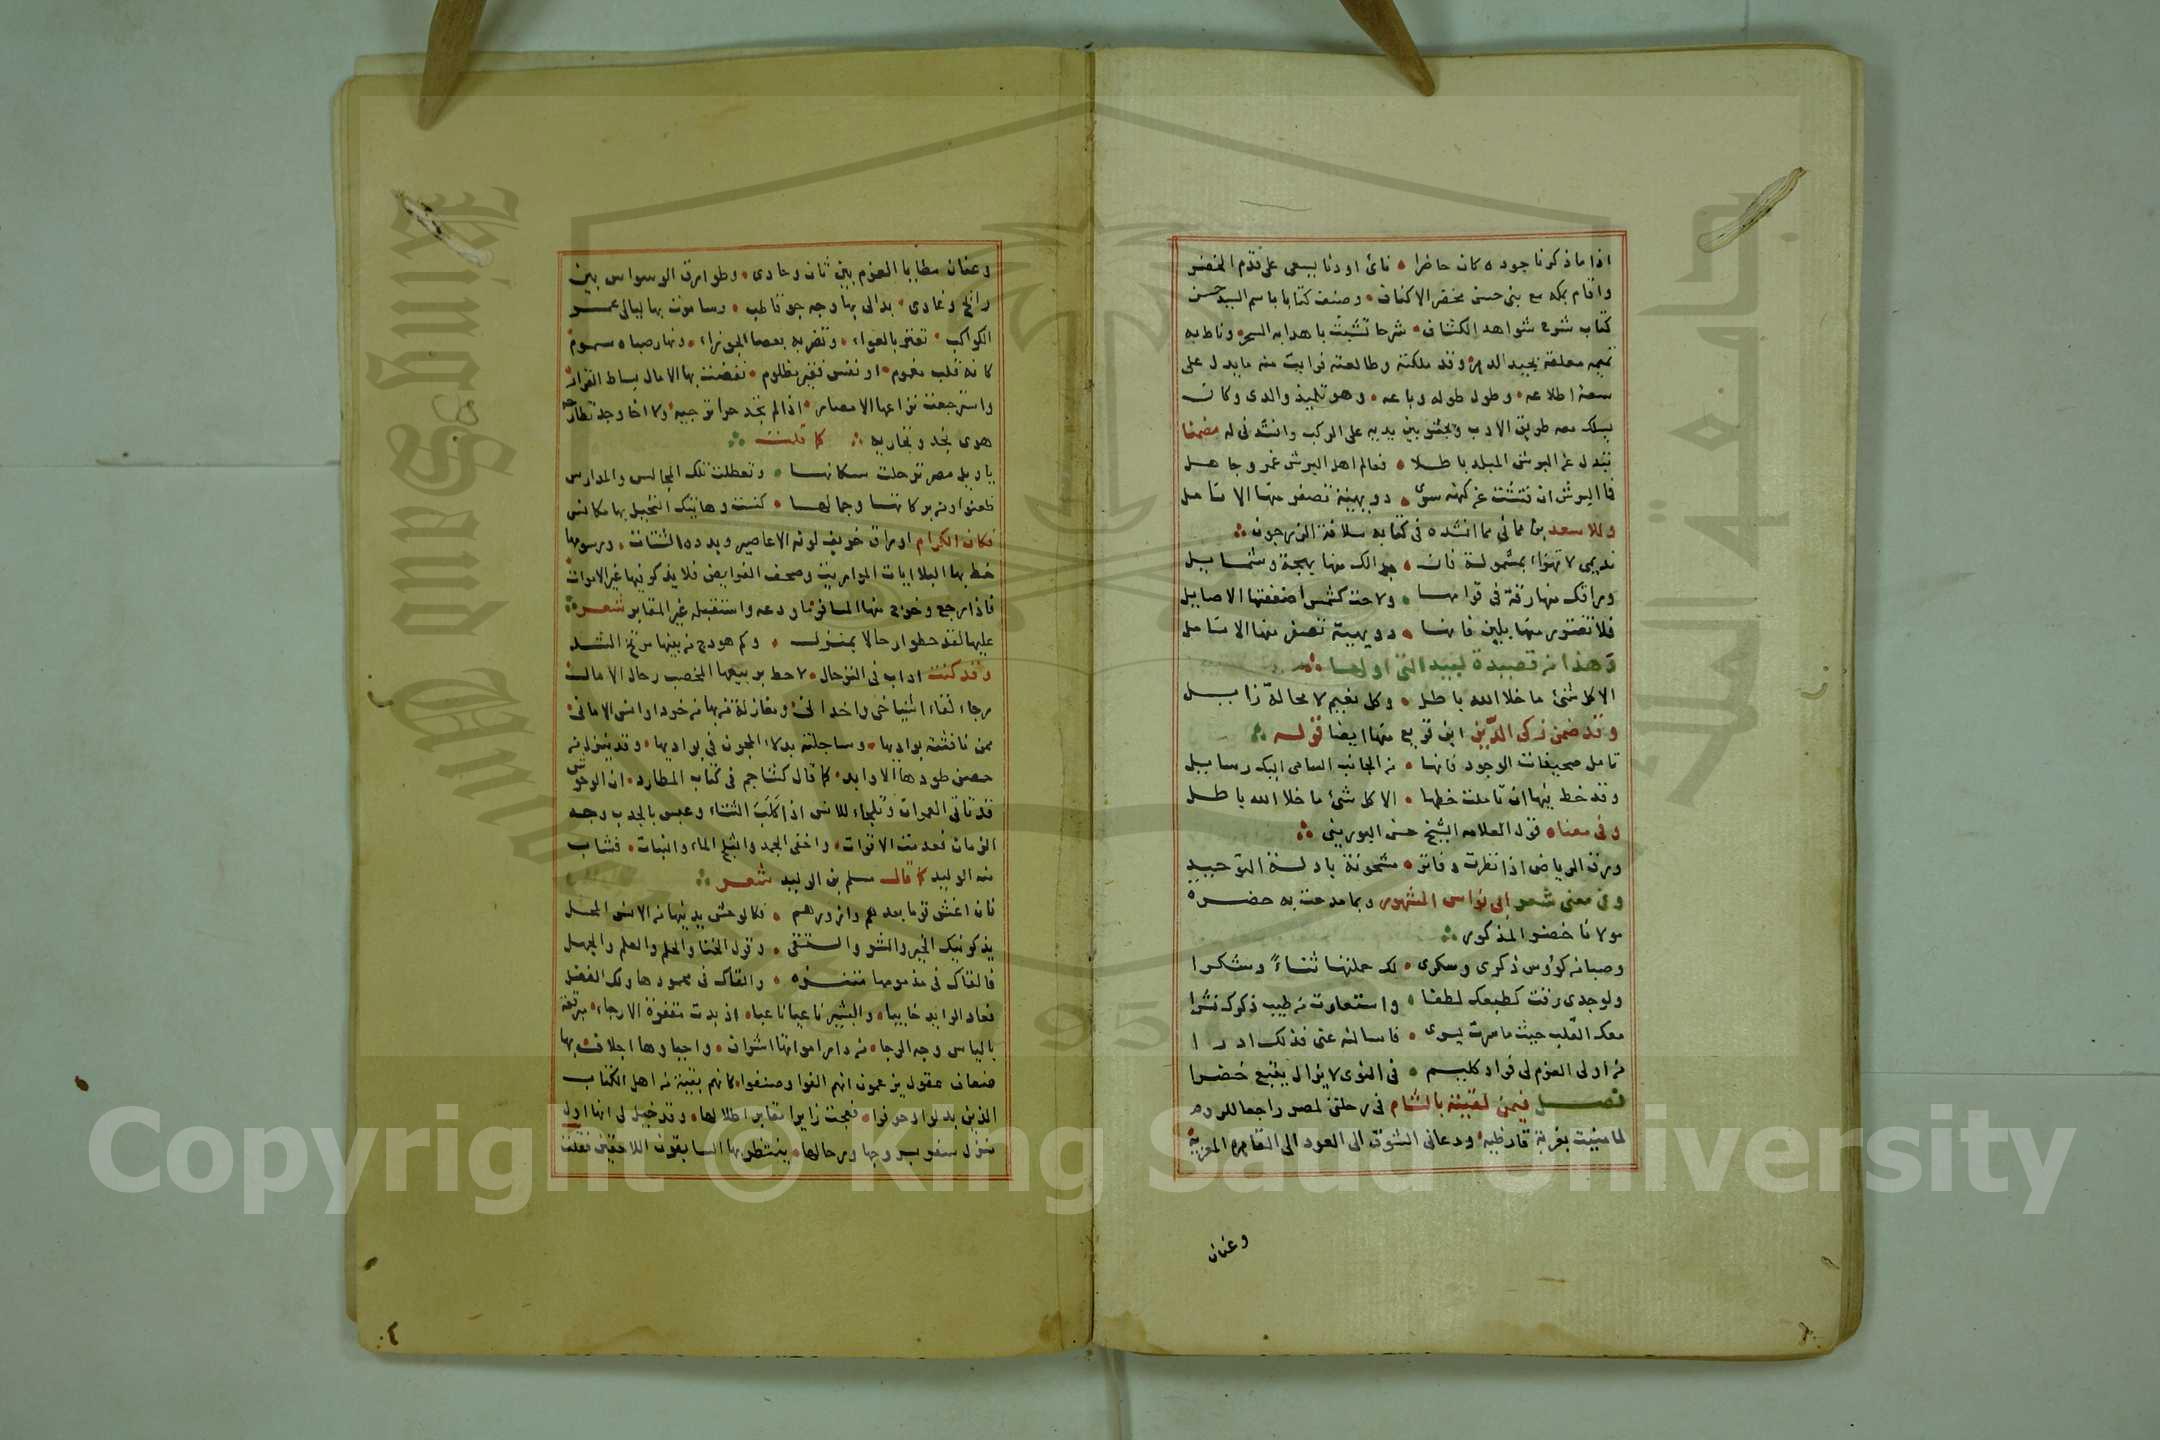 اذا ما ذكرنا جوده كان حاضرا نائ اودنا يسعى على قدم الخضر
واقام بمكه مع بنى حسن مخضر الاكناف وصنف كتابا باسم السيد حسن
كتاب شرح شواهد الكشاف شرحا تشبث باهدابه السحر وناط به
تميمه معلقة بجيد الدهر وقد ملكته وطالعته فرايت منه ما يدل على
سعة اطلاعه وطول طوله وباعه وهو تلميذ والدى وكان
يسلك معه طريق الادب ويجثو بين يديه على الركب وانشدنى له مضمنا
تبدل عن البرش المبلد باطلا فعالم اهل البرش غمر وجاهل
فا البرش ان فتشت عن كنه سرى دويهية تصفر منها الانامل
وللاسعد بن مماتي مما انشده فى كتابه سلافة الزرجون
نديمى لا تهزاء بمشمولة فان جمالك منها بهجة وشمايل
ومراتك منها رقة فى قوامها ولاحت كشمس اضعفتها الاصايل
فلا تغترر منها بلين فانها دويهية تصفر منها الانامل
وهذا من قصيدة لبيد التى اولها
الا كل شئ ما خلا الله باطل وكل نعيم لا محالة زايل
وقد ضمن زكى الدين ابن قريع منها ايضا قوله
تامل صحيفات الوجود فانها من الجانب السامى اليك رسايل
وقد خط فيها ان تاملت خطها الا كل شئ ما خلا الله باطل
وفى معناه قول العلامه الشيخ حسن البورينى
ورق الرياض اذا نظرت دفاتر مشحونة بادلة التوحيد
وفى معنى شعر ابى نواس المشهور ومما مدحت به حضرة
مولانا خضر المذكور
وصبا من كؤوس ذكرى وسكرى لك حملتها ثناءً وشكرا
ولوجدى رقت كطبعك لطفا واستعارت من طيب ذكرك نشرا
معك القلب حيث ما سرت يسرى فاساله عنى فذلك ادرا
من اولى العزم لى فواد كليم فى الهوى لا يزال يتبع خضرا
فصل فيمن لقيته بالشام فى رحلتى لمصر راجعا للروم
لما منيت بغربة قارظيه ودعانى الشوق الى العود الى القاهره المعزية
وعنان
وعنان مطايا العزم بين ثان وحادى وطوارق الوسواس بين
رائح وغادى بدالى بها وجه جو قاطب وسامرت بها ليالى عمر
الكواكب تعتز بالعواء وتضربه بعصا الجوزاء ونهار صباه سموم
كانه قلب مغموم او نفس فقير مظلوم نفضت بها الامال بساط القرار
واسترجعت نزاعها الامصار اذا لم نجد حرا ترجيه ولا اخا وجد تطارحه
هوى نجد وتجاريه كما قلت
ياويل مصر ترحلت سكانها وتعطلت تلك المجالس والمدارس
ظعنوا ومن بركاتها وجمالها كنست وهاتيك التجمل بها مكانس
فكان الكرام اوراق خريف لوته الاعاصير وبدده الشتات ورسومها
خط بها البلا ايات المواريث وصحف الفرايض فلا يذكر فيها غير الاموات
فاذا رجع وخرج منها المسافر ما ودعه واستقبله غير المقابر شعر
عليها لقد حطوا رحالا بمنزل وكم هودج من بينها مرتخ الشد
وقد كنت اداب فى الترحال لاحط بربيعها المخصب رحال الامال
رجاء لقاء اشياخى واخدانى ومغازلة من بها من خود اوانس الامانى
ممن نافثته بواديها وساجلته بدلاء المجون فى بواديها وقد ينزل من
حصن طودها الاوابد كما قال كشاجم فى كتاب المطارد ان الوحوش
قد تاتى العمران وتلجاء للانس اذا كلب الشتاء وعبس بالجدب وجه
الزمان فعدمت الاقوات واخفى الجمد والثلج الماء والنبات فشاب
منه الوليد كما قال مسلم بن الوليد شعر
فان اغش قوما بعدهم وازورهم فكالوحش يدنيها من الانس المحل
يذكرنيك الخير والشر والتقى وقول الخنا والحلم والعلم والجهل
فالقاك فى مذمومها متنزه والقاك فى محمودها ولك الفضل
فعاد الرايد خايبا والبشير ناعيا ناعبا اذ بدت مقفرة الارجاء مبرقعة
بالياس وجه الرجا من دام اموانها اشوات واحياوها اجلاف بها
ضعاف عقول يزعمون انهم الفوا وصنفوا كانهم بقية من اهل الكتاب
الذين بدلوا وحرفوا فعجت زايرا مقابر اطلالها وقد خيل لى انها اول
نزول سفر بروجها ورحالها ينتظر بها السابقون اللاحقين فقلت